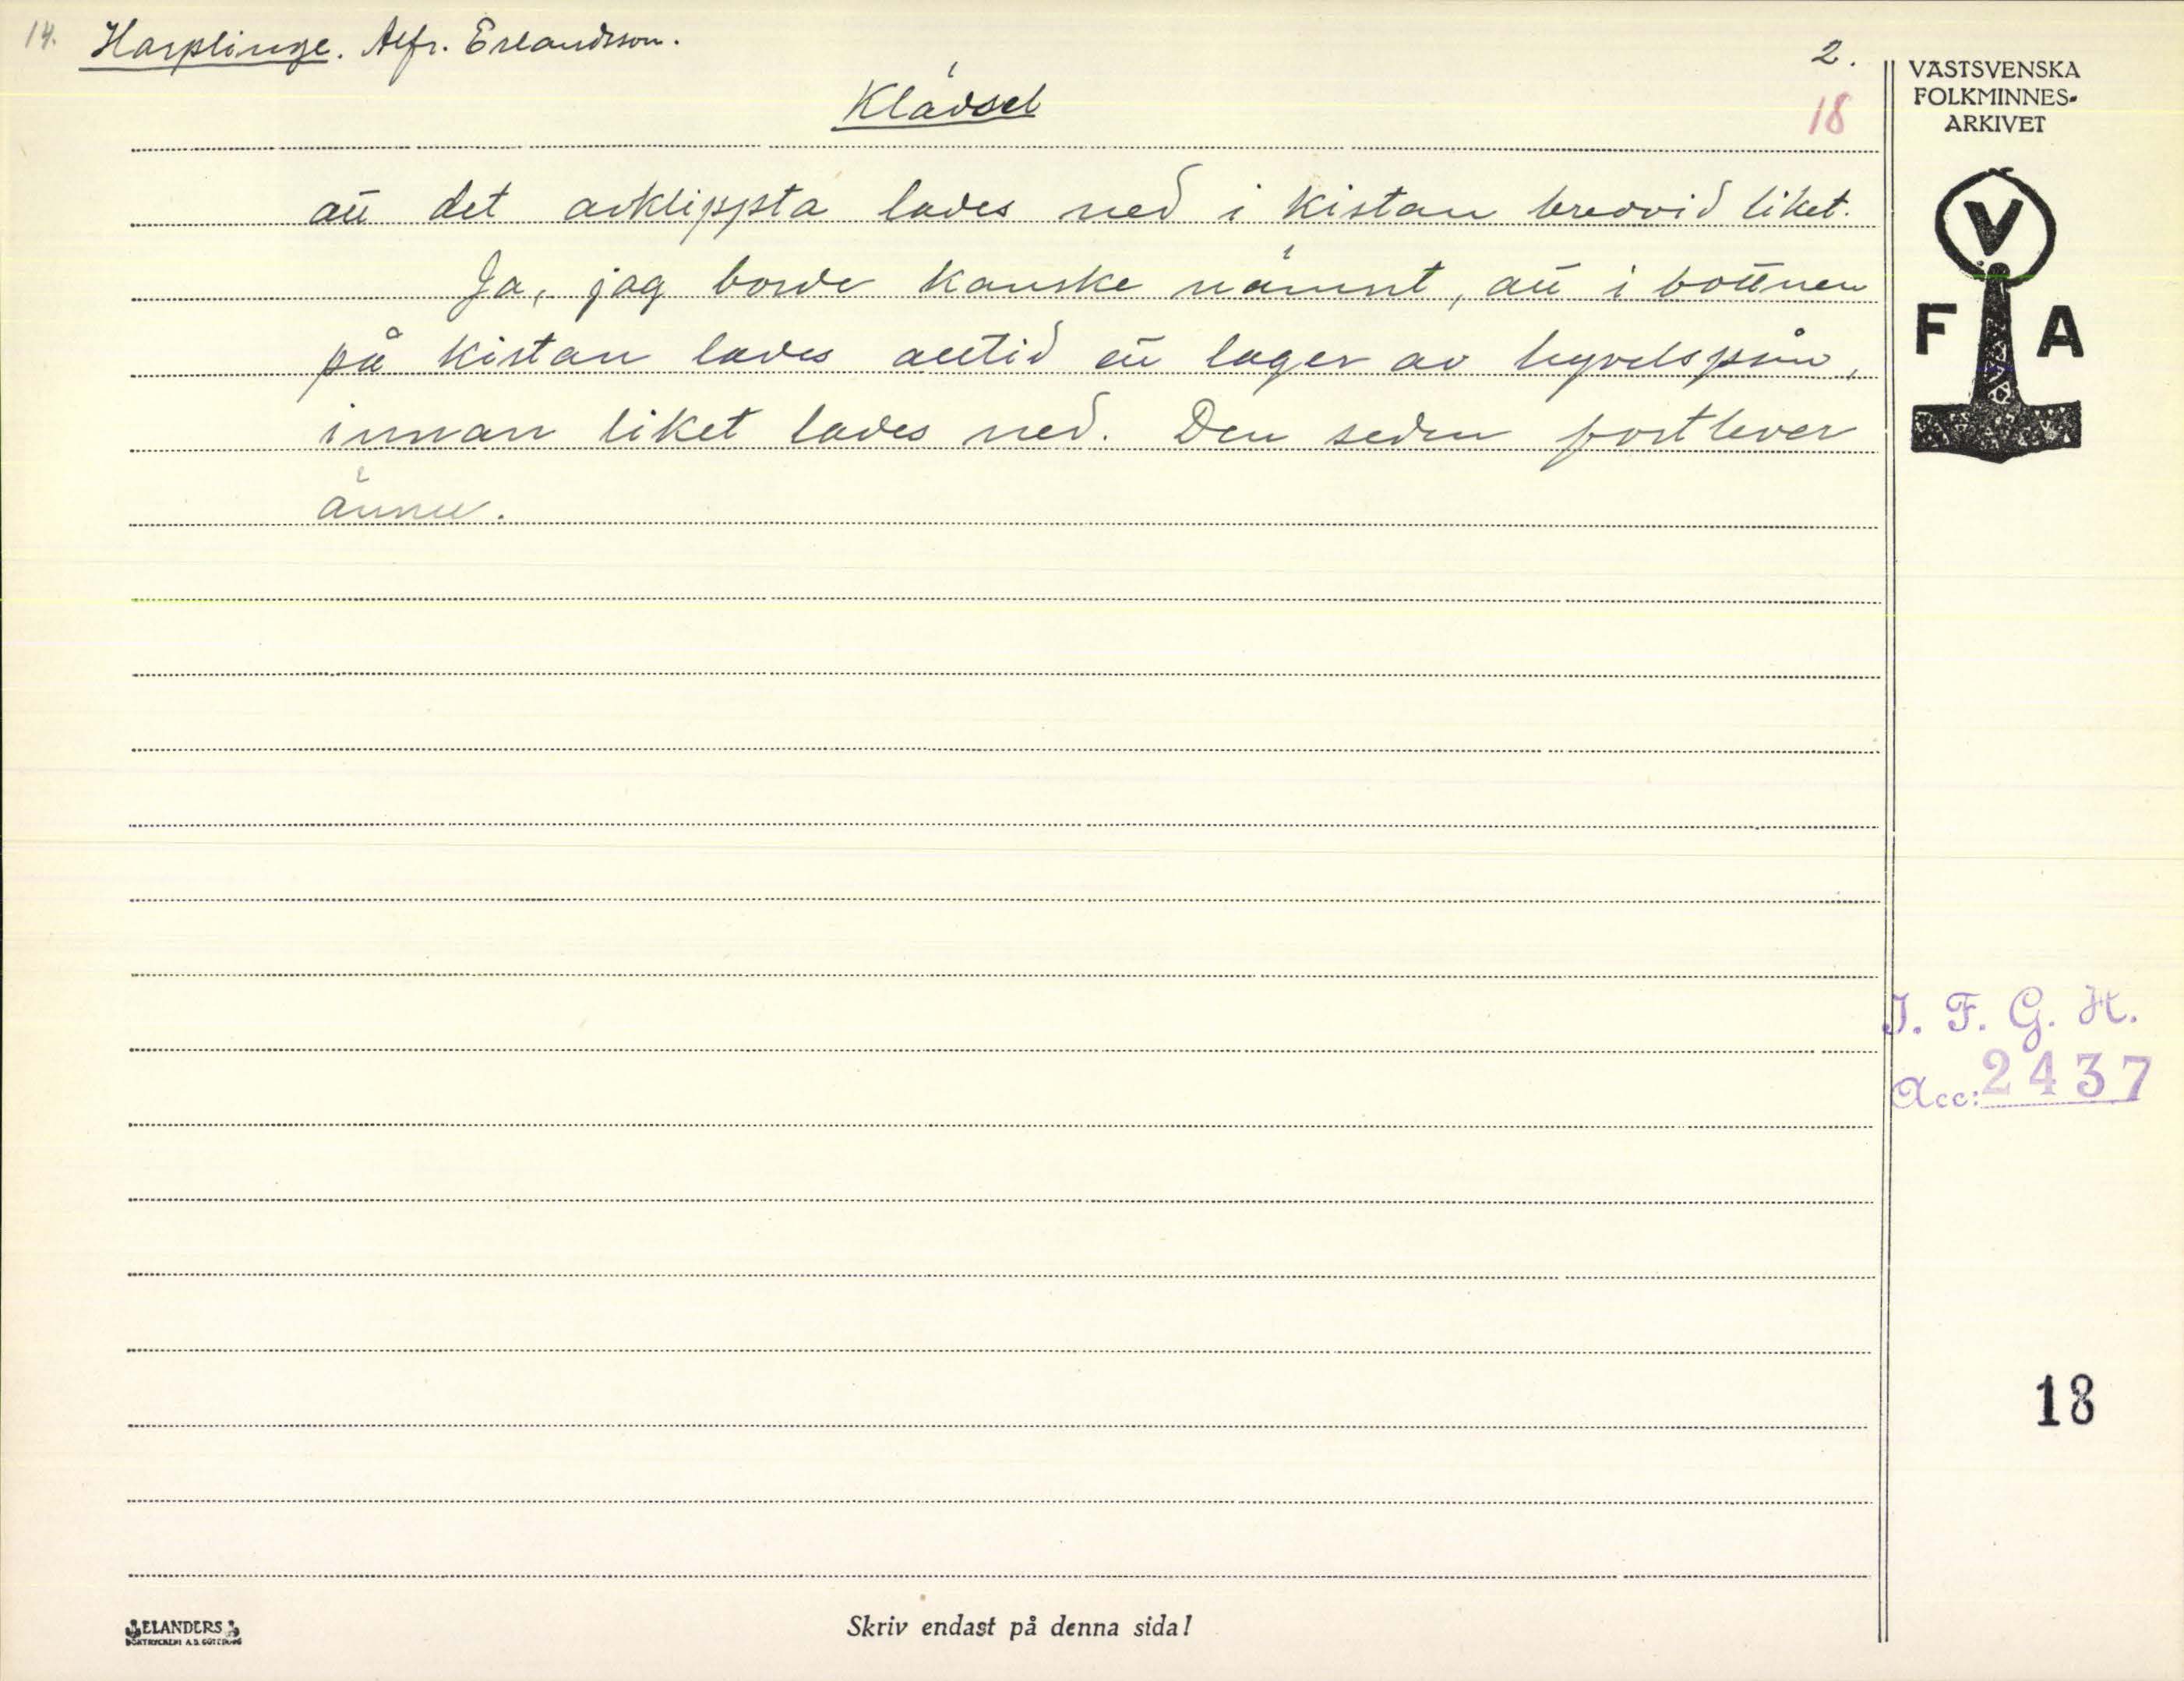 14. Harplinge. Alfr. Erlandsson. 2.
Klädsel 18
att det avklippta lades ned i kistan bredvid liket.
Ja, jag borde kanske nämnt, att i bottnen
på kistan lades alltid ett lager av hyvelspån,
innan liket lades ned. Den seden fortlever
ännu.
VÄSTSVENSKA
FOLKMINNES-
ARKIVET
V
F A
I. F. G. H.
Acc: 2437
18
ELANDERS
BOKTRYCKERI A.B. GÖTEBORG
Skriv endast på denna sida!